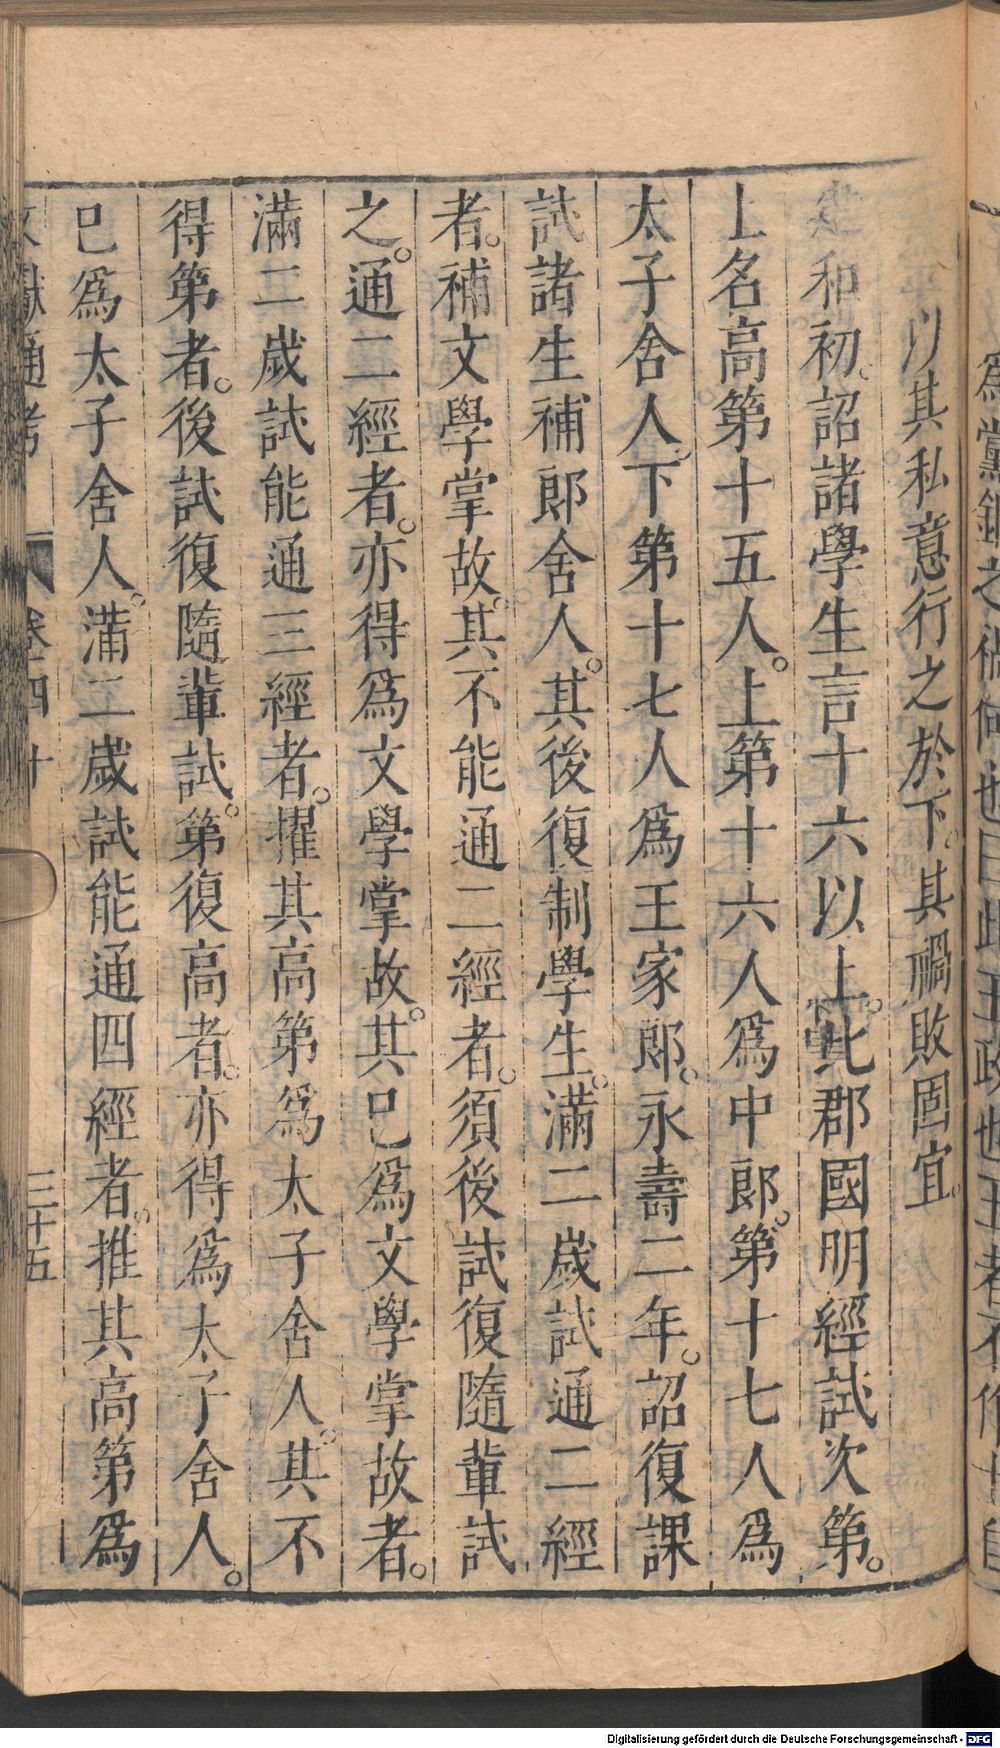 爲黨錮之禍何也曰此王政也王者不作士自
以其私意行之於下。其禍敗固宜。
和初。詔諸學生言十六以上。比郡國明經試次第。
上名高第十五人。上第十六人爲中郎。第十七人爲
太子舍人。下第十七人爲王家郎。永壽二年。詔復課
試諸生補郎舍人。其後復制學生。滿二歲試通二經
者。補文學掌故。其不能通二經者。須後試復隨輩試
之。通二經者。亦得爲文學掌故。其已爲文學掌故者。
滿二歲試能通三經者。擢其高第爲太子舍人。其不
得第者。後試復隨輩試。第復高者。亦得爲太子舍人。
已爲太子舍人。滿二歲試能通四經者。推其高第爲
文獻通考 卷四十 三十五
Digitalisierung gefördert durch die Deutsche Forschungsgemeinschaft - DFG